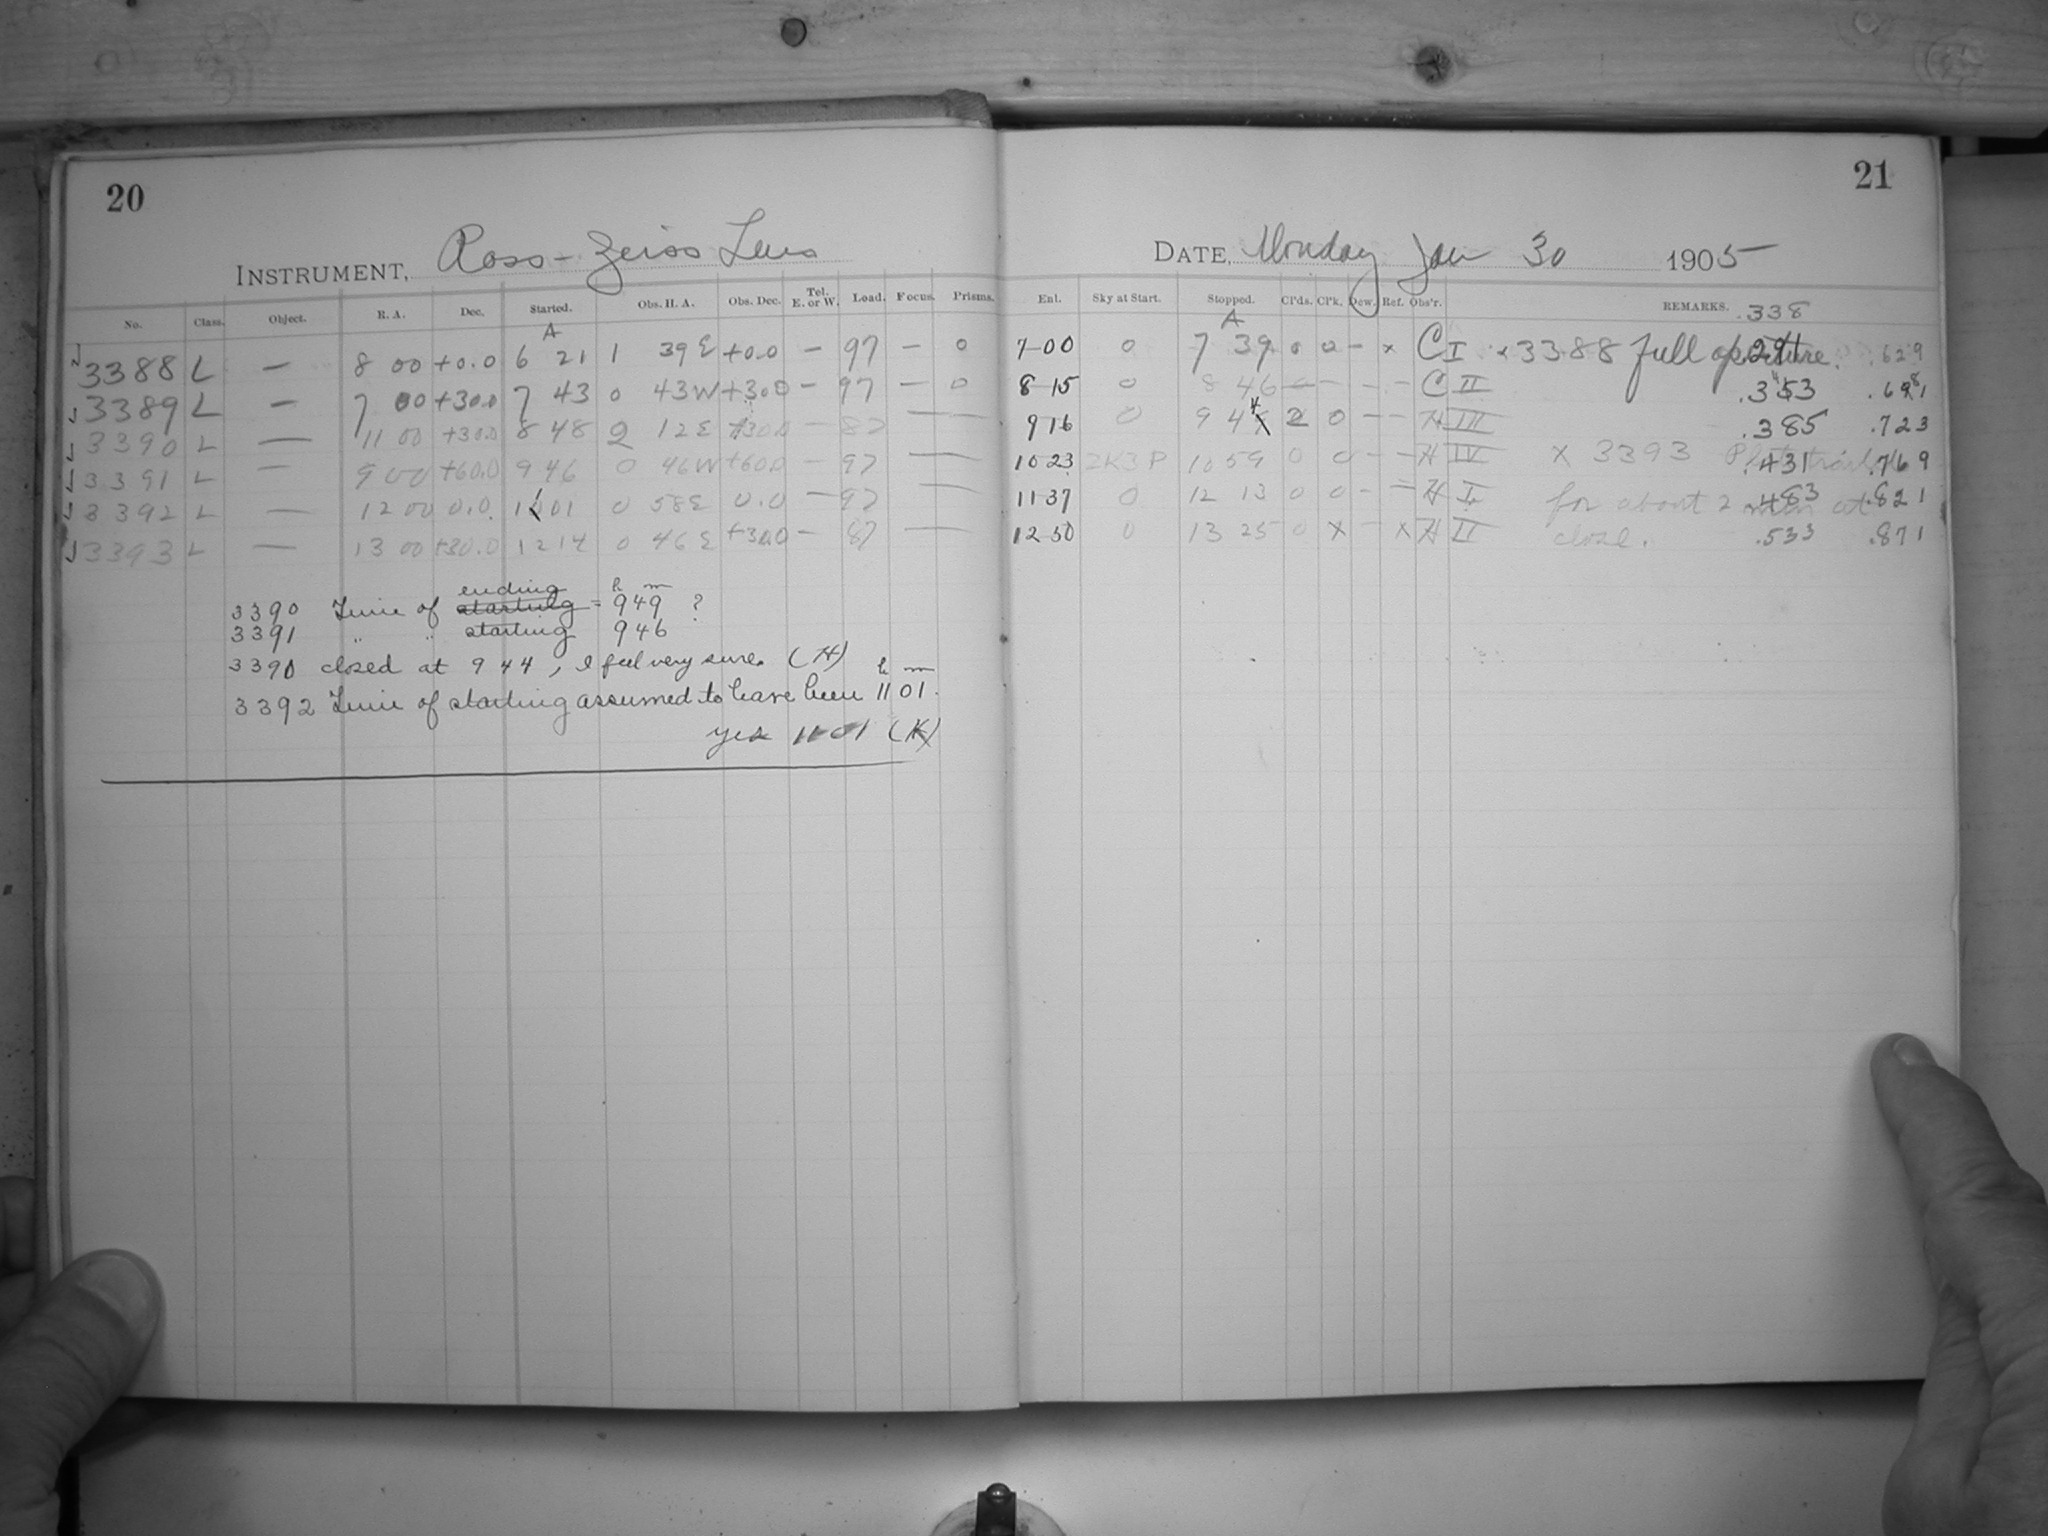 20
INSTRUMENT, Ross-Zeiss Lens
No. Class. Object. R. A. Dec. Started. Obs. H. A. Obs. Dec. Tel. E. or W. Load. Focus. Prisms.
A
3388 L — 8 00 +0.0 6 21 1 39 E +0.0 — 97 — 0
3389 L — 7 00 +30.0 7 43 0 43 W +30.0 — 97 — 0
3390 L — 11 00 +30.0 8 48 2 12 E +30.0 — 87 —
3391 L — 9 00 +60.0 9 46 0 46 W +60.0 — 97 —
3392 L — 12 00 0.0 11 01 0 58 E 0.0 — 97 —
3393 L — 13 00 +30.0 12 14 0 46 E +30.0 — 87 —
ending h m
3390 Time of starting = 9 49 ?
3391 " " starting 9 46
3390 closed at 9 44, I feel very sure. (H)
h m
3392 Time of starting assumed to have been 11 01.
yes 11 01 (H)
21
DATE, Monday Jan 30 1905
Enl. Sky at Start. Stopped. Cl'ds. Cl'k. Dew. Ref. Obs'r. REMARKS. .338
A
7-00 0 7 39 0 0 — x C I x 3388 full aperture. .291 .629
8-15 0 8 46 — — — — C II .353 .691
9 16 0 9 44 2 0 — — H III .385 .723
10 23 2K3P 10 59 0 0 — — H IV x 3393 .431 .769
11 37 0 12 13 0 0 — — H I for about 2 min at .483 .821
12 50 0 13 25 0 x — x H II close. .533 .871